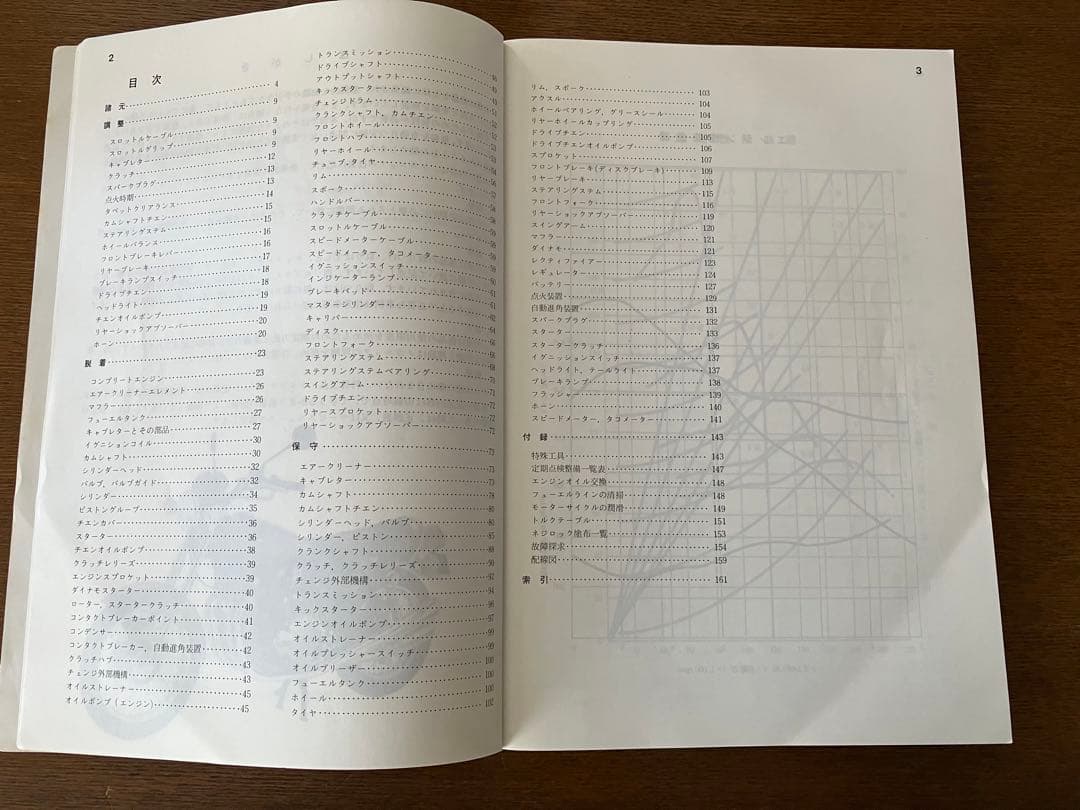 2
目次
諸元 4
調整 9
スロットルケーブル 9
スロットルグリップ 9
キャブレター 9
クラッチ 12
スパークプラグ 13
点火時期 13
タペットクリアランス 14
カムシャフトチェン 15
ステアリングステム 15
ホイールバランス 16
フロントブレーキレバー 16
リヤーブレーキ 17
ブレーキランプスイッチ 18
ドライブチエン 18
ヘッドライト 19
チエンオイルポンプ 19
リヤーショックアブソーバー 20
ホーン 20
脱着 23
コンプリートエンジン 23
エアークリーナーエレメント 26
マフラー 26
フューエルタンク 27
キャブレターとその部品 27
イグニションコイル 30
カムシャフト 30
シリンダーヘッド 32
バルブ，バルブガイド 32
シリンダー 34
ピストングループ 35
チエンカバー 36
スターター 36
チエンオイルポンプ 38
クラッチレリーズ 39
エンジンスプロケット 39
ダイナモスターター 40
ローター，スタータークラッチ 40
コンタクトブレーカーポイント 41
コンデンサー 42
コンタクトブレーカー，自動進角装置 42
クラッチハブ 43
チェンジ外部機構 43
オイルストレーナー 45
オイルポンプ（エンジン） 45
トランスミッション
ドライブシャフト 46
アウトプットシャフト
キックスターター
チェンジドラム
クランクシャフト，カムチエン
フロントホイール 52
フロントハブ
リヤーホイール
チューブ，タイヤ 54
リム 56
スポーク 57
ハンドルバー 58
クラッチケーブル 58
スロットルケーブル 59
スピードメーターケーブル 59
スピードメーター，タコメーター 59
イグニッションスイッチ
インジケーターランプ 60
ブレーキパッド 61
マスターシリンダー 61
キャリパー 62
ディスク 64
フロントフォーク 66
ステアリングステム 66
ステアリングステムベアリング 68
スイングアーム 70
ドライブチエン 71
リヤースプロケット 72
リヤーショックアブソーバー 72
保守 73
エアークリーナー 73
キャブレター 73
カムシャフト 78
カムシャフトチエン 80
シリンダーヘッド，バルブ 80
シリンダー，ピストン 85
クランクシャフト 88
クラッチ，クラッチレリーズ 90
チェンジ外部機構 92
トランスミッション 94
キックスターター 96
エンジンオイルポンプ 97
オイルストレーナー 99
オイルプレッシャースイッチ 99
オイルブリーザー 100
フューエルタンク 100
ホイール 100
タイヤ 102
3
リム，スポーク 103
アクスル 104
ホイールベアリング，グリースシール 104
リヤーホイールカップリング 105
ドライブチエン 105
ドライブチエンオイルポンプ 106
スプロケット 107
フロントブレーキ(ディスクブレーキ) 109
リヤーブレーキ 113
ステアリングステム 115
フロントフォーク 116
リヤーショックアブソーバー 119
スイングアーム 120
マフラー 121
ダイナモ 121
レクティファイアー 123
レギュレーター 124
バッテリー 127
点火装置 129
自動進角装置 131
スパークプラグ 132
スターター 133
スタータークラッチ 136
イグニッションスイッチ 137
ヘッドライト，テールライト 137
ブレーキランプ 138
フラッシャー 139
ホーン 140
スピードメーター，タコメーター 141
付録 143
特殊工具 143
定期点検整備一覧表 147
エンジンオイル交換 148
フューエルラインの清掃 148
モーターサイクルの潤滑 149
トルクテーブル 151
ネジロック塗布一覧 153
故障探求 154
配線図 159
索引 161